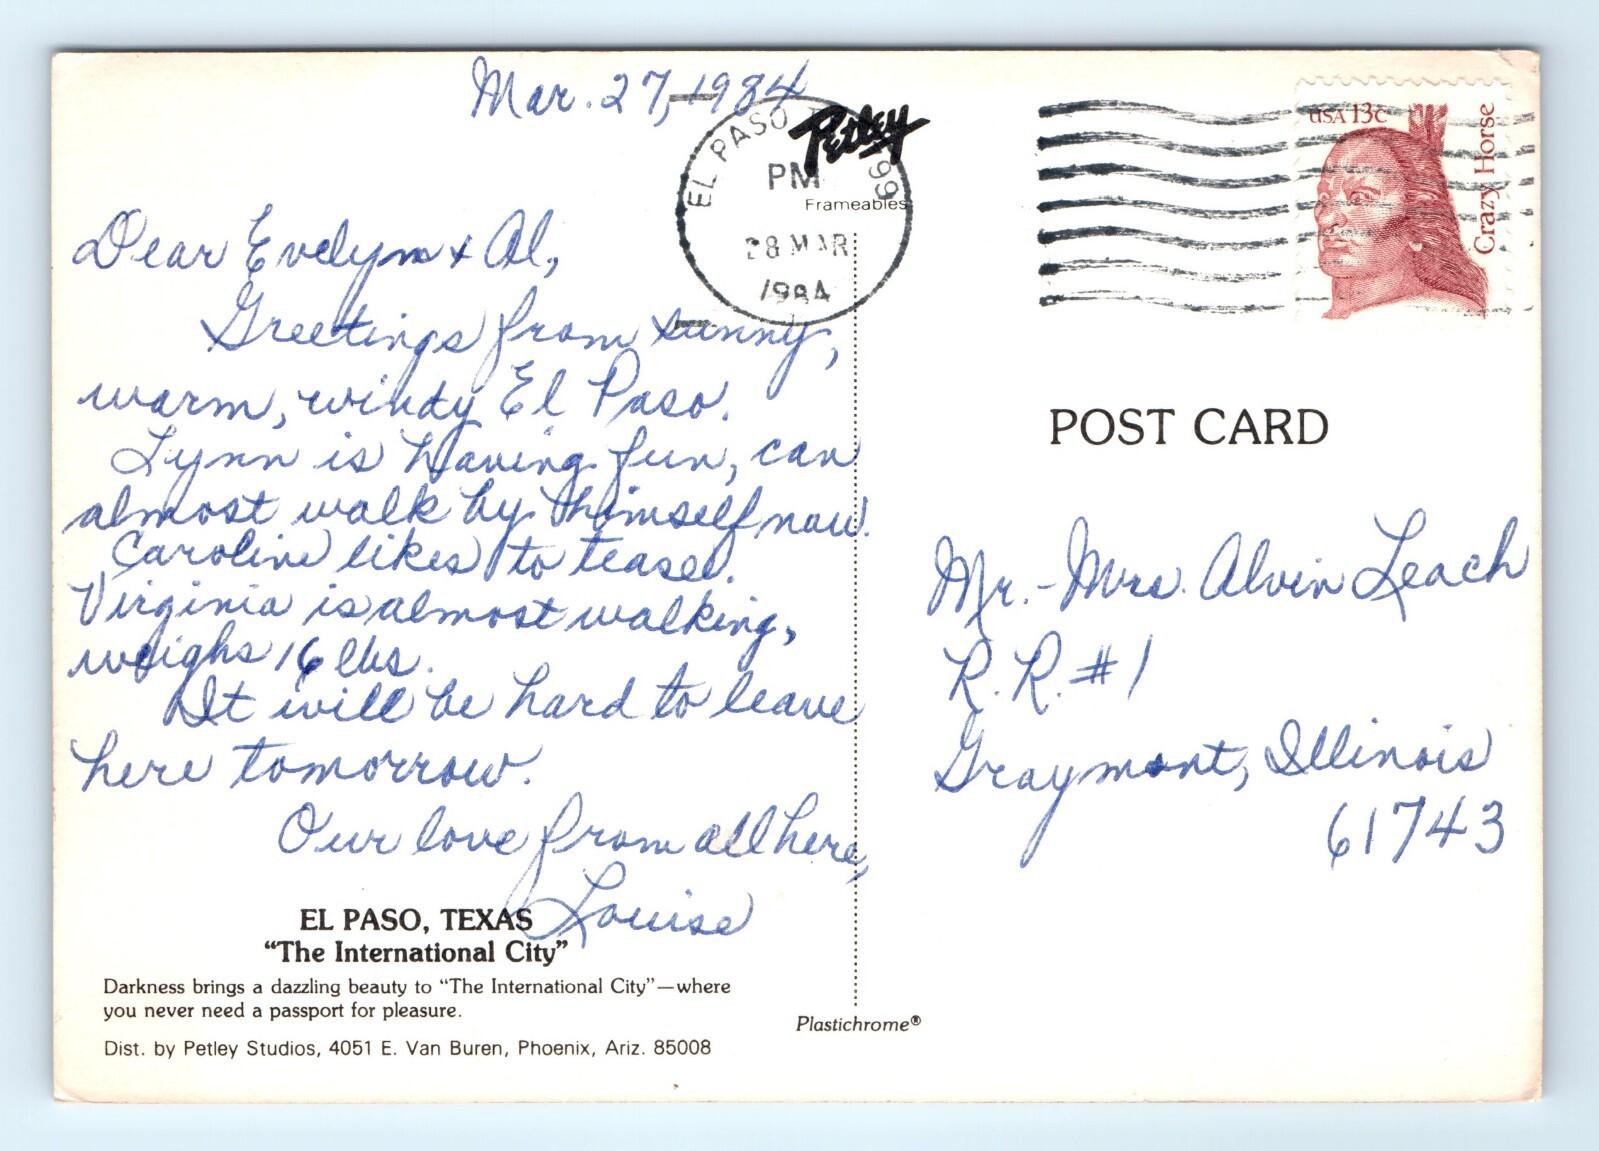 Mar. 27, 1984
EL PASO
799
PM
28 MAR
1984
Petley
Frameables
USA 13c
Crazy Horse
Dear Evelyn + Al,
Greetings from sunny,
warm, windy El Paso.
Lynn is having fun, can
almost walk by himself now.
Caroline likes to tease.
Virginia is almost walking,
weighs 16 lbs.
It will be hard to leave
here tomorrow.
Our love from all here,
Louise
EL PASO, TEXAS
“The International City”
Darkness brings a dazzling beauty to “The International City”—where
you never need a passport for pleasure.
Dist. by Petley Studios, 4051 E. Van Buren, Phoenix, Ariz. 85008
Plastichrome®
POST CARD
Mr. - Mrs. Alvin Leach
R. R. #1
Graymont, Illinois
61743